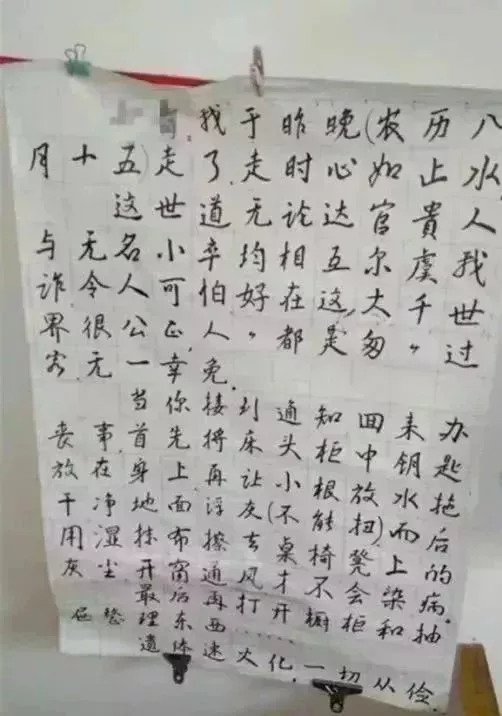 找于昨晚(农历八
月十五)走了,走时心如止水,
这世道无论达官貴人
与无名小卒均相互尔虞我
诈令人可怕,好在这大千世
界很公正,人都是"匆"过
客 无一幸免.
当你接到通知回来办
丧事首先将床头柜中钥匙
放在身上再让小根放水拖
干净地面浮灰(不能扭)而后
用湿抹布擦去桌椅凳上的
灰尘开窗通风才不会染病.
最后再打开橱柜和抽
屉整理东西……
遗体速火化,一切从俭.